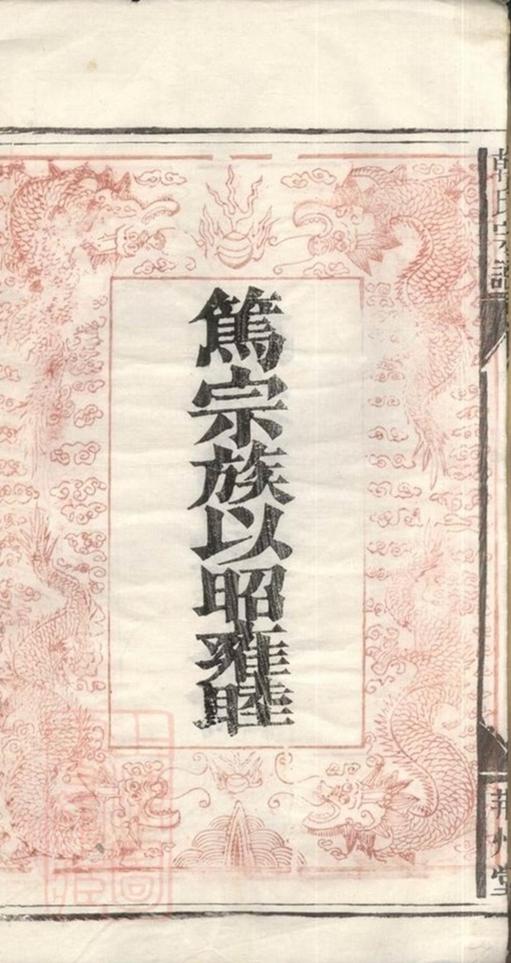 韓氏宗譜
篤宗族以昭雍睦
荊州堂